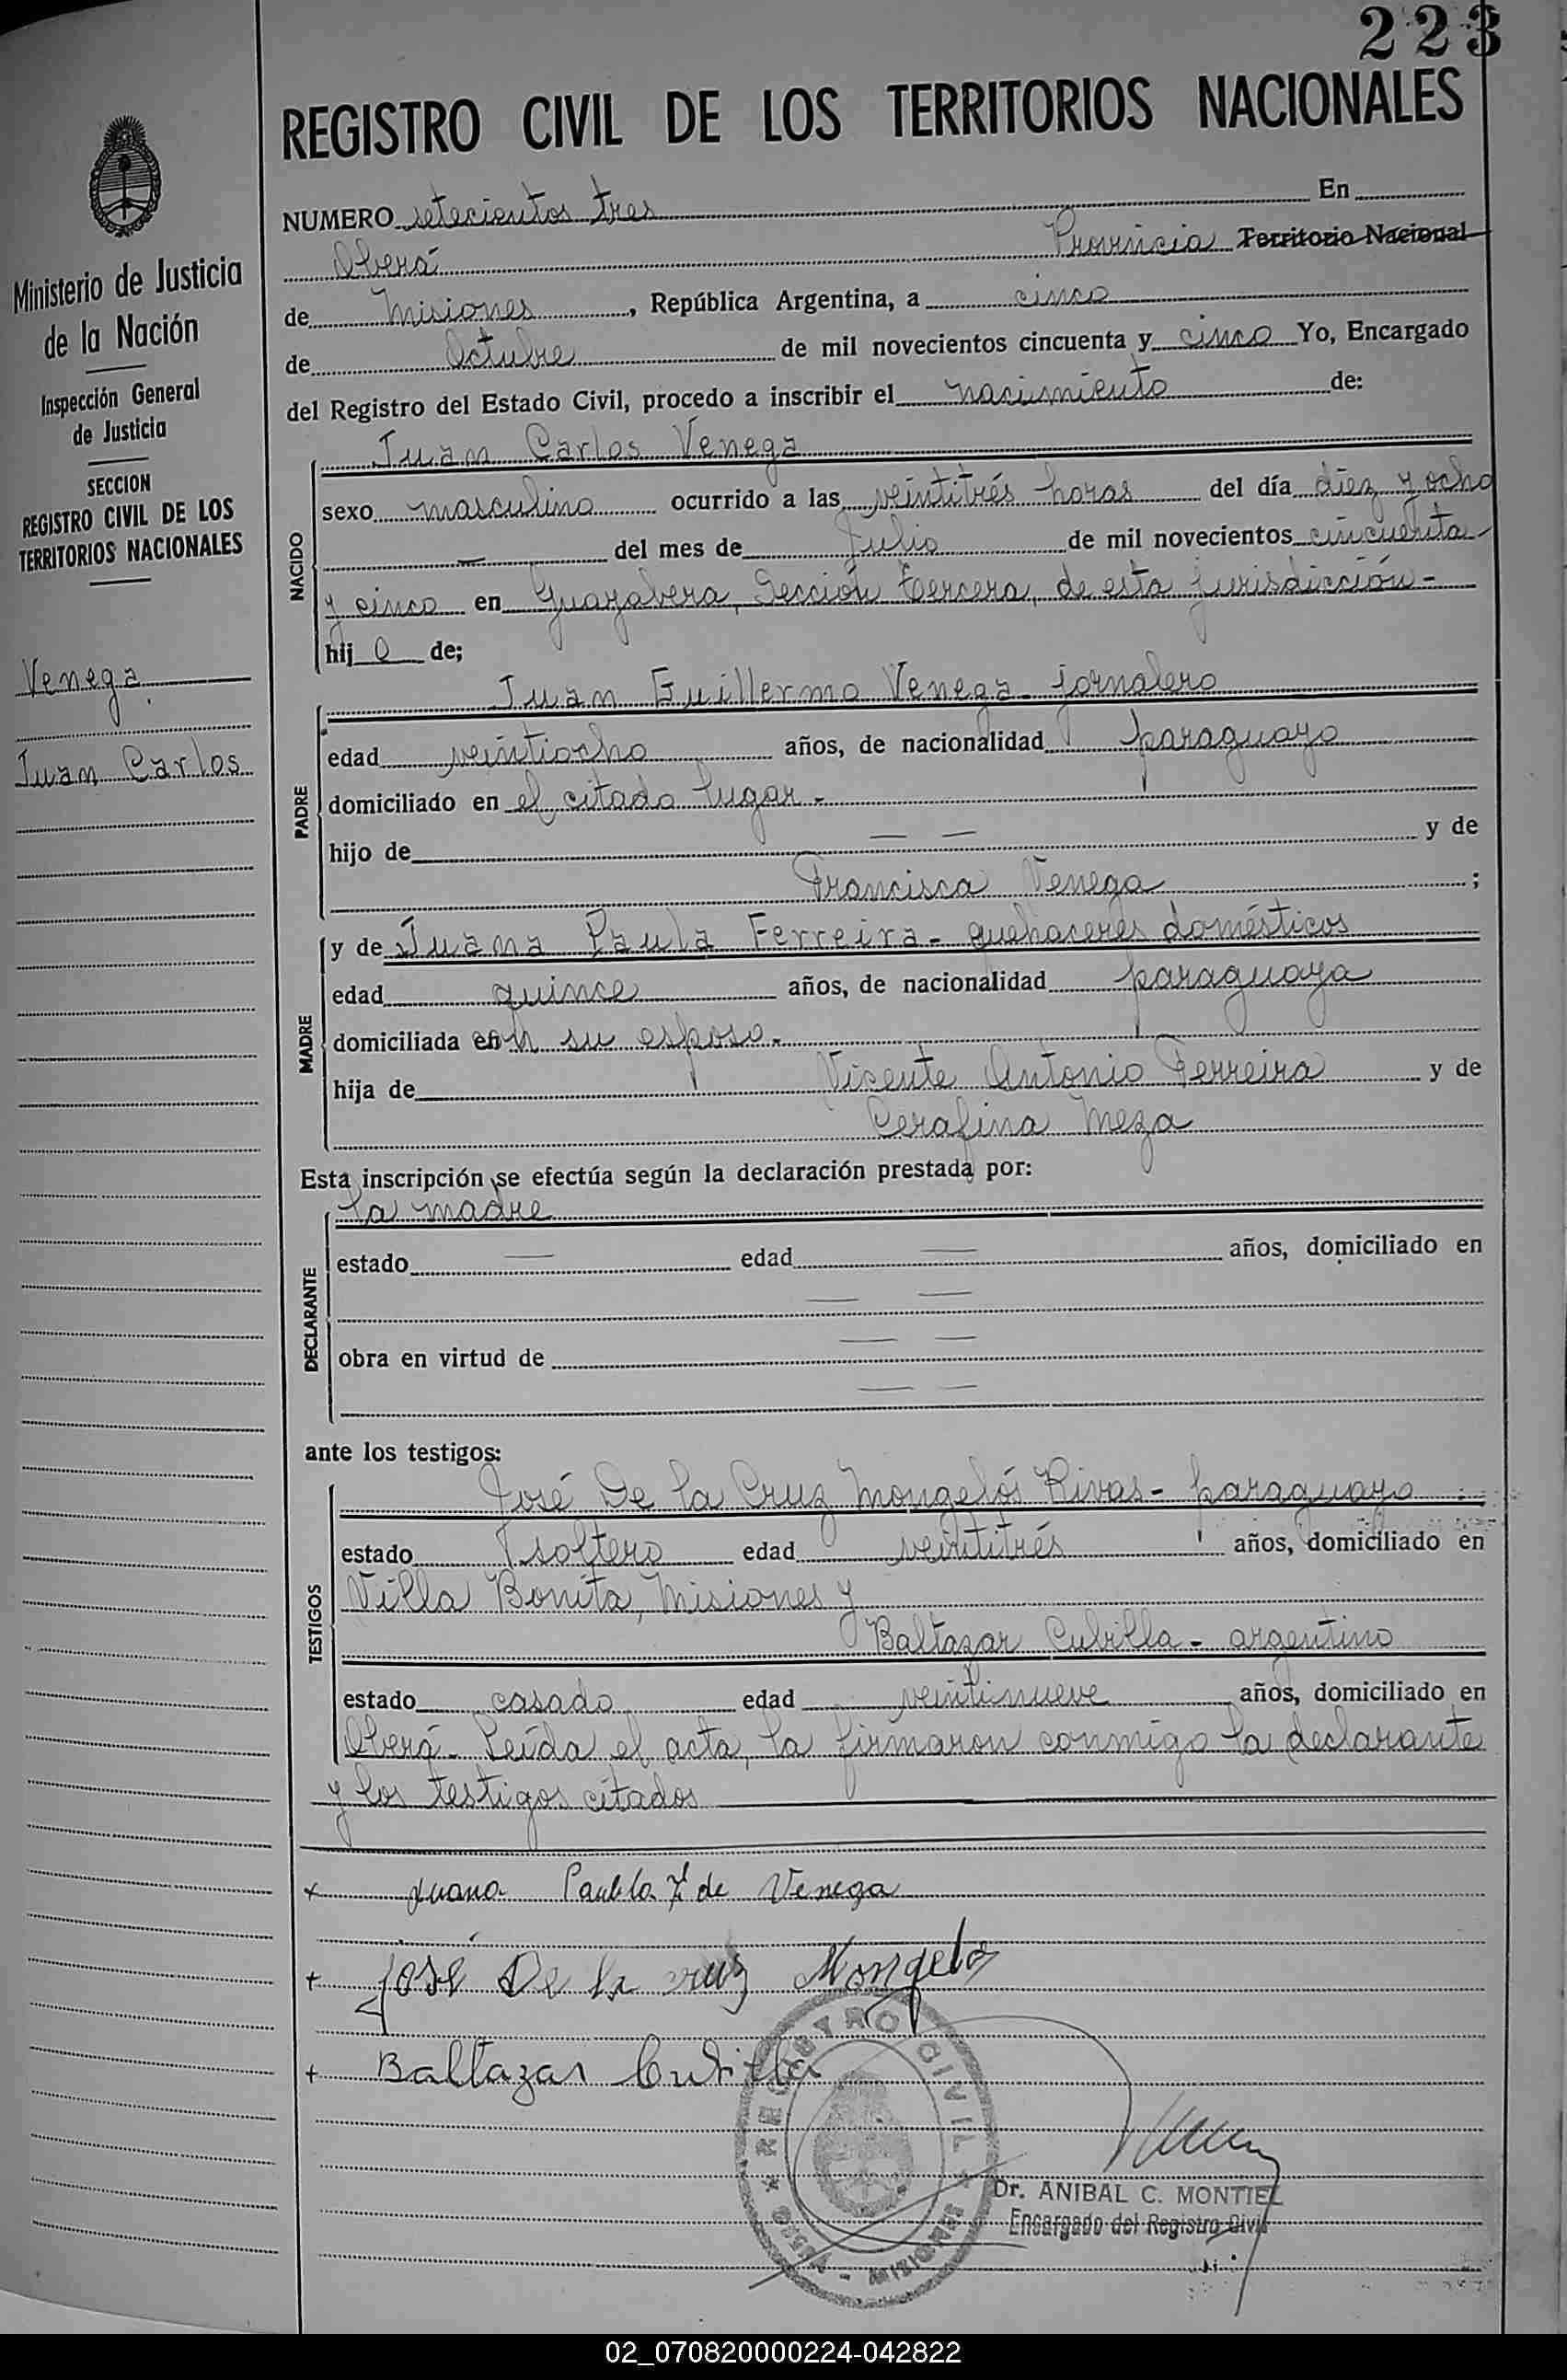 223
REGISTRO CIVIL DE LOS TERRITORIOS NACIONALES
Ministerio de Justicia
de la Nación
Inspección General
de Justicia
SECCION
REGISTRO CIVIL DE LOS
TERRITORIOS NACIONALES
Venega
Juan Carlos
NUMERO setecientos tres En
Oberá Provincia Territorio Nacional
de Misiones, República Argentina, a cinco
de Octubre de mil novecientos cincuenta y cinco Yo, Encargado
del Registro del Estado Civil, procedo a inscribir el nacimiento de:
NACIDO
Juan Carlos Venega
sexo masculino ocurrido a las veintitrés horas del día diez y ocho
— del mes de Julio de mil novecientos cincuenta
y cinco en Guayabera, Sección tercera, de esta jurisdicción-
hijo de;
PADRE
Juan Guillermo Venega- jornalero
edad veintiocho años, de nacionalidad paraguayo
domiciliado en el citado lugar-
hijo de — — y de
Francisca Venega ;
MADRE
y de Juana Paula Ferreira- quehaceres domésticos
edad quince años, de nacionalidad paraguaya
domiciliada en su esposo.
hija de Vicente Antonio Ferreira y de
Cerafina Meza
Esta inscripción se efectúa según la declaración prestada por:
DECLARANTE
la madre
estado — edad — años, domiciliado en
— —
obra en virtud de — —
— —
ante los testigos:
TESTIGOS
José De la Cruz Mongelós Rivas- paraguayo
estado soltero edad veintitrés años, domiciliado en
Villa Bonita, Misiones y
Baltazar Cubilla- argentino
estado casado edad veintinueve años, domiciliado en
Oberá- Leída el acta, la firmaron conmigo la declarante
y los testigos citados
+ Juana Paubla F de Venega
+ José De la cruz Mongelos
+ Baltazar Cubilla
REGISTRO CIVIL
MISIONES
Dr. ANIBAL C. MONTIEL
Encargado del Registro Civil
02_070820000224-042822